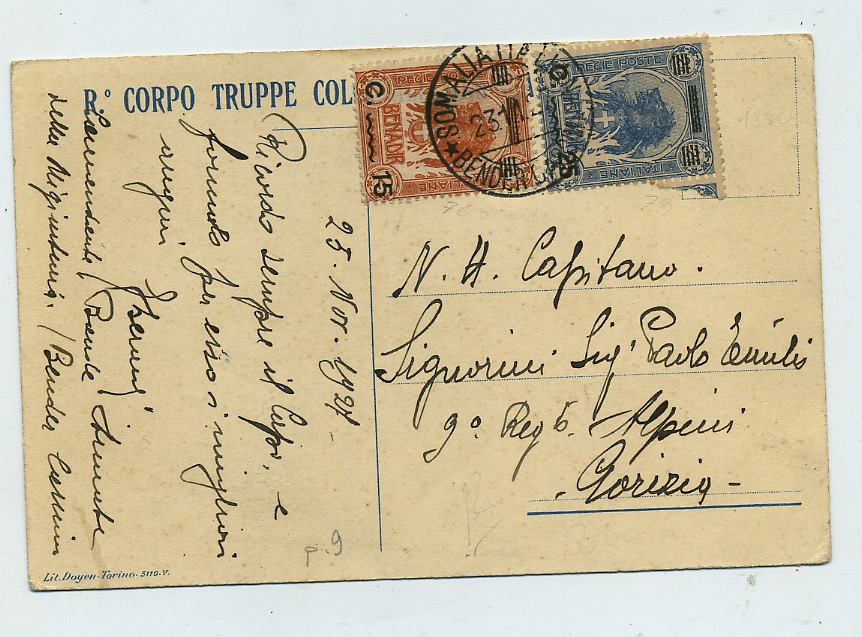 R.º CORPO TRUPPE COL
REGIE POSTE
BENADIR
ITALIANE
C. 15
SOMALIA ITALIANA
23.11.
★ BENDER
REGIE POSTE
ITALIANE
C. 25
23. Nov. 1927.
Ricordo sempre il Capo, e
formulo per esso i migliori
auguri.
Comandante Bande Armate
della Migiurtinia. / Bender Cassim
N. H. Capitano.
Signorini Sig. Paolo Emilio
9º Regt. Alpini
Gorizia -
p. 9
Lit. Doyen-Torino. 5110.V.